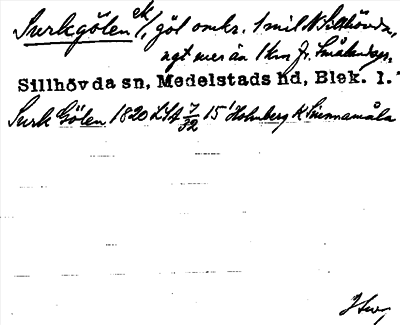 Surkgölen ek/, göl omkr. 1 mil N Sillhövda,
ngt mer än 1 km fr. Smålandsgr.
Sillhövda sn, Medelstads hd, Blek. l.
Surk Gölen 1820 LSA 7/32 15' Holmberg K